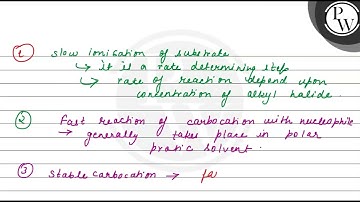 PW
① slow ionisation of substrate
↳ it is a rate determining step
↳ rate of reaction depend upon
concentration of alkyl halide.
② fast reaction of carbocation with nucleophile
→ generally takes place in polar
protic solvent.
③ Stable carbocation → fa